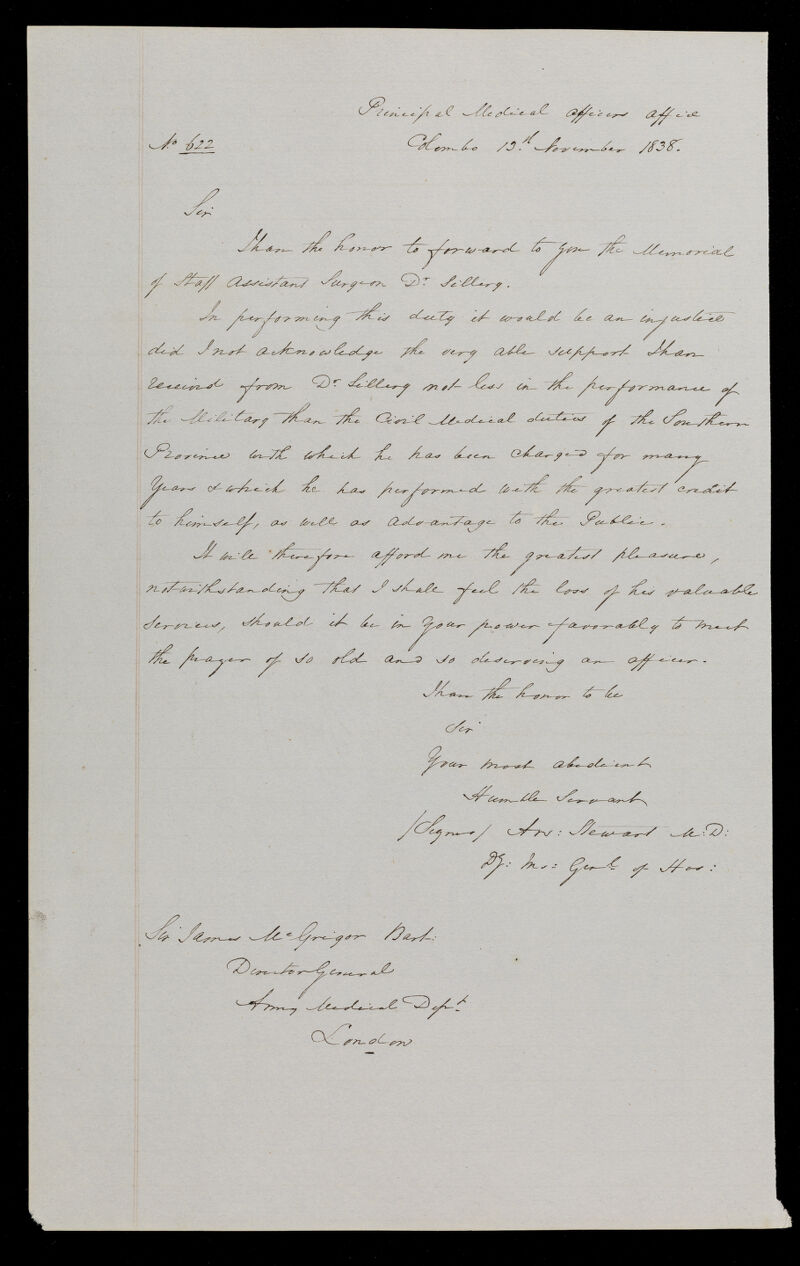 Principal Medical Officers Office
No 622
Colombo 13th November 1838.
Sir
I have the honor to forward to you the Memorial
of Staff Assistant Surgeon Dr Sillery.
In performing this duty it would be an injustice
did I not acknowledge the very able support I have
received from Dr Sillery not less in the performance of
the Military than the Civil Medical duties of the Southern
Province with which he has been charged for many
Years & which he has performed with the greatest credit
to himself, as well as advantage to the Public.
It will therefore afford me the greatest pleasure,
notwithstanding that I shall feel the loss of his valuable
services, should it be in your power favorably to meet
the prayer of so old and so deserving an officer.
I have the honor to be
Sir
Your most obedient
Humble Servant
/Signed/ Anw: Stewart M:D:
Dy: Ins: Genl of Hos:
Sir James McGrigor Bart:
Director General
Army Medical Dept
London